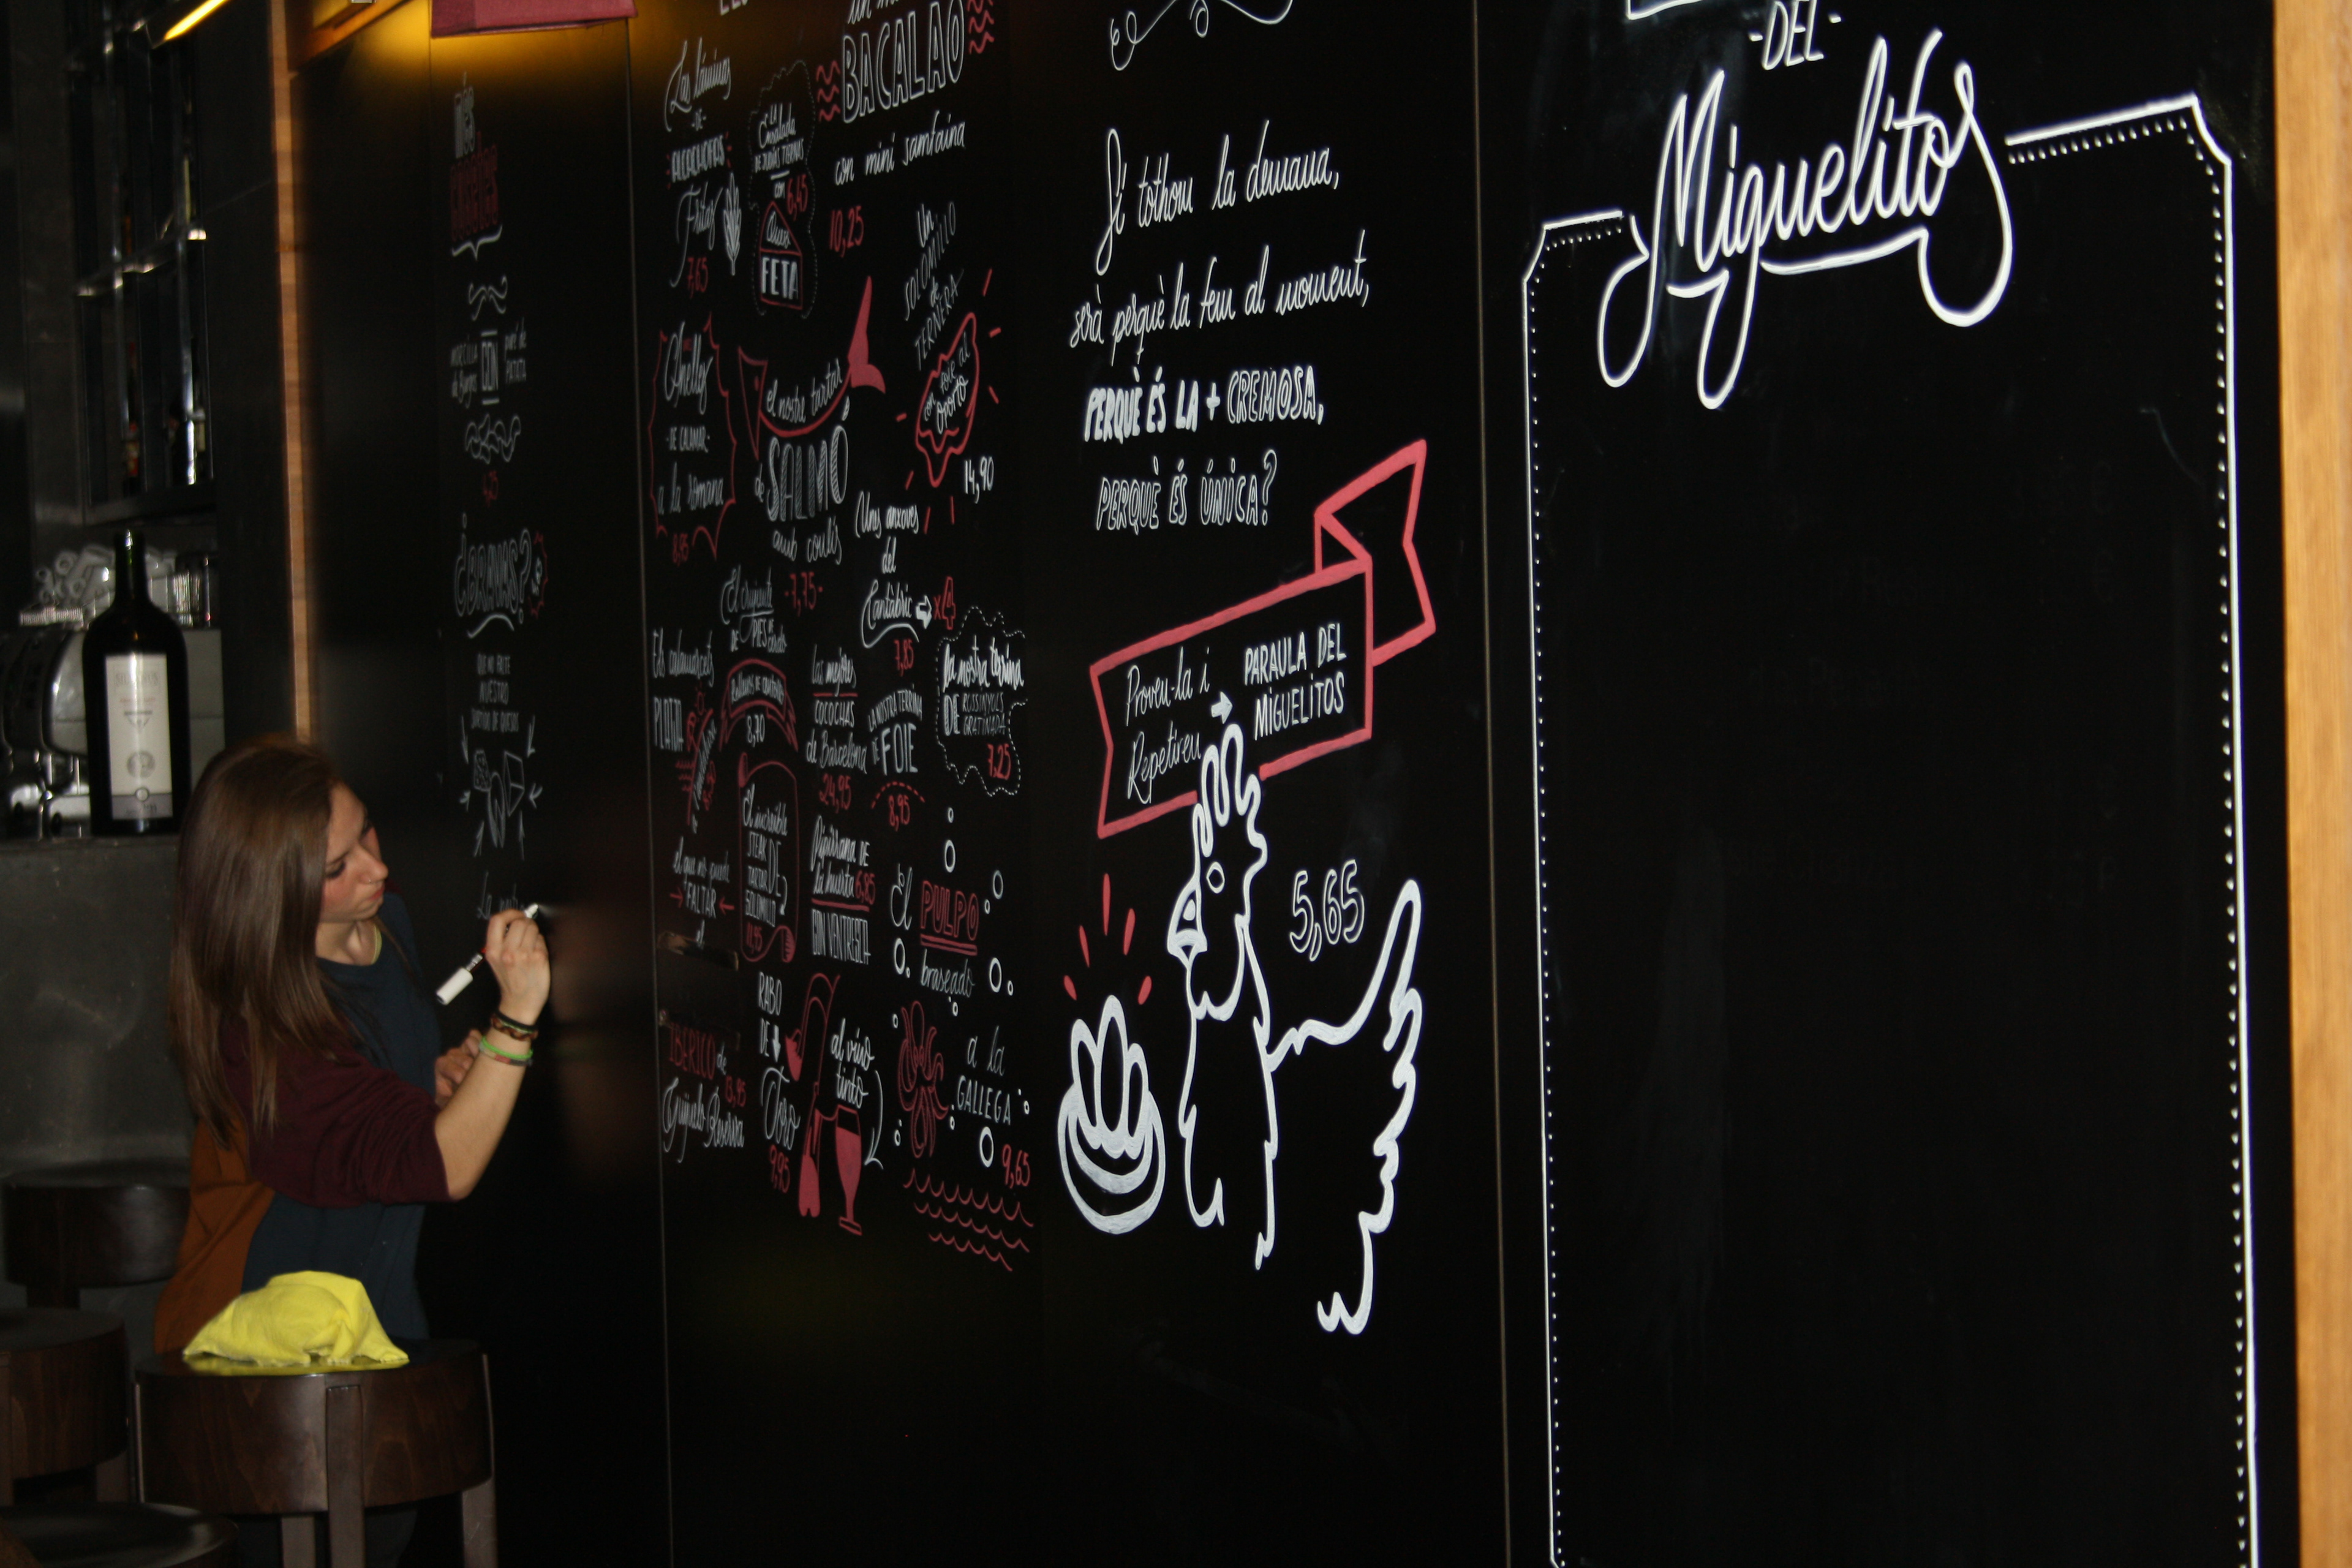 més
MORCILLA
de Burgos
CON
puré de
PATATA
¿BRAVAS?
QUE NO FALTE
NUESTRO
Las láminas
-DE-
Fritas
7,65
LA
Ensalada
DE JUDÍAS TIERNAS
CON
6,45
FETA
un
BACALAO
con mini samfaina
10,25
Un
SOLOMILLO
de
TERNERA
con foie al
oporto
14,90
Anellas
-DE CALAMAR-
a la romana
8,95
el nostre tartar
de
SALMÓ
amb coulís
-7,75-
Unes anxoves
del
Cantàbric
x4
7,85
El crujiente
DE PIES de
Els calamarcets
PLATJA
8,70
las mejores
COCOCHAS
de Barcelona
24,95
LA NOSTRA TERRINA
DE FOIE
8,95
la nostra terrina
DE ROSSINYOLS
GRATINADA
7,25
el que no puede
FALTAR
el
IBÉRICO de
13,95
Guijuelo Reserva
El increíble
STEAK
TARTAR DE
SOLOMILLO
Pipirrana DE
la huerta 6,85
CON VENTRESCA
El
PULPO
braseado
a la
GALLEGA
9,65
RABO
DE
Toro
al vino
tinto
9,95
Si tothom la demana,
serà perquè la fem al moment,
PERQUÈ ÉS LA + CREMOSA,
PERQUÈ ÉS ÚNICA?
Proveu-la i
Repetireu
PARAULA DEL
MIGUELITOS
5,65
-DEL-
Miguelitos